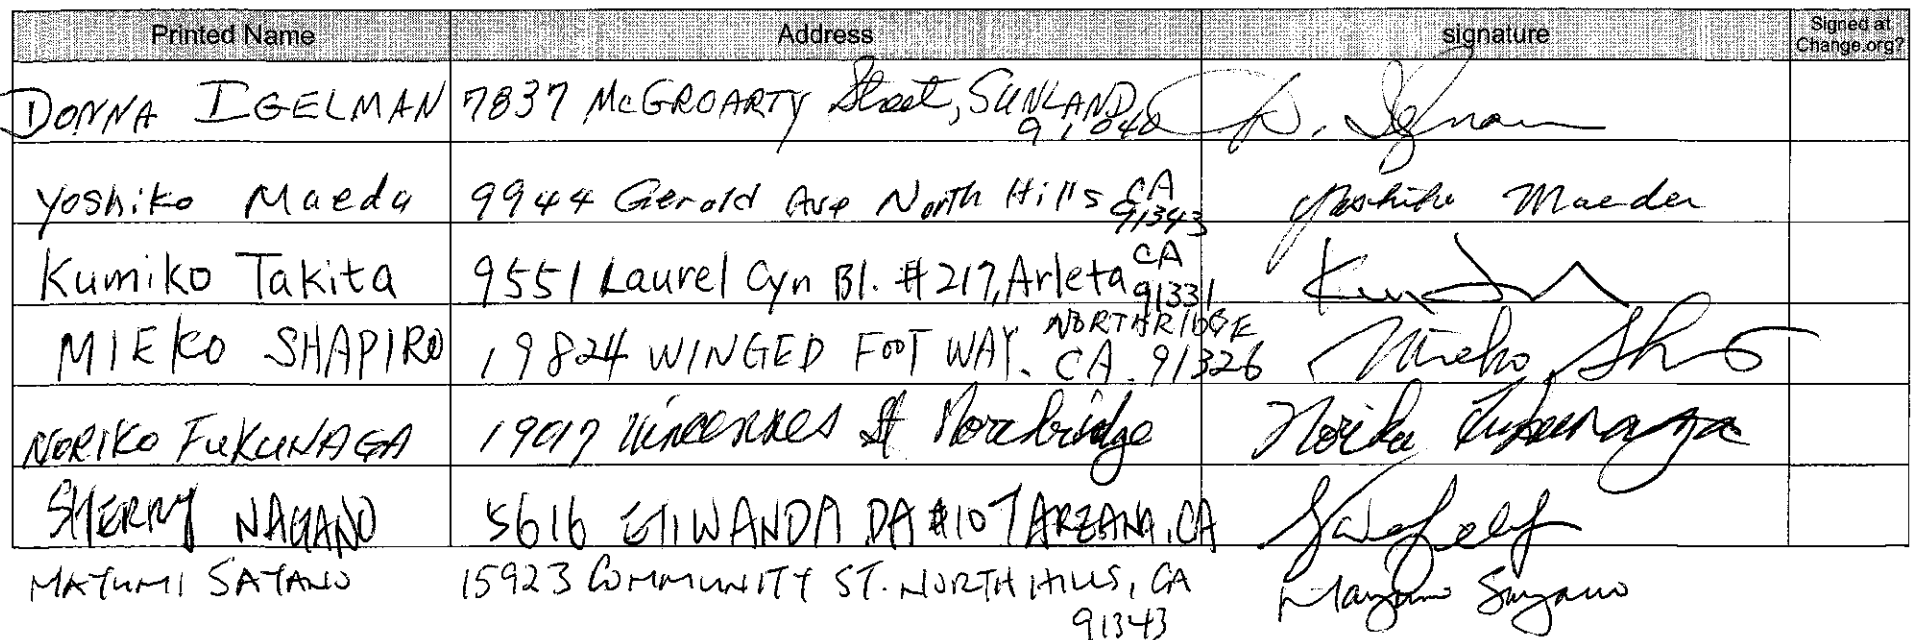 Printed Name Address signature Signed at Change.org?
DONNA IGELMAN 7837 McGROARTY Street, SUNLAND 91040 D. Igelman
Yoshiko Maeda 9944 Gerald Ave North Hills CA 91343 Yoshiko Maeda
Kumiko Takita 9551 Laurel Cyn Bl. #217, Arleta CA 91331
MIEKO SHAPIRO 19824 WINGED FOOT WAY. NORTHRIDGE CA. 91326 Mieko Sh
NORIKO FUKUNAGA 19017 Vincennes St Northridge Noriko Fukunaga
SHERRY NAGANO 5616 ETIWANDA #107 TARZANA, CA
MAYUMI SAYANO 15923 COMMUNITY ST. NORTH HILLS, CA 91343 Mayumi Sayano